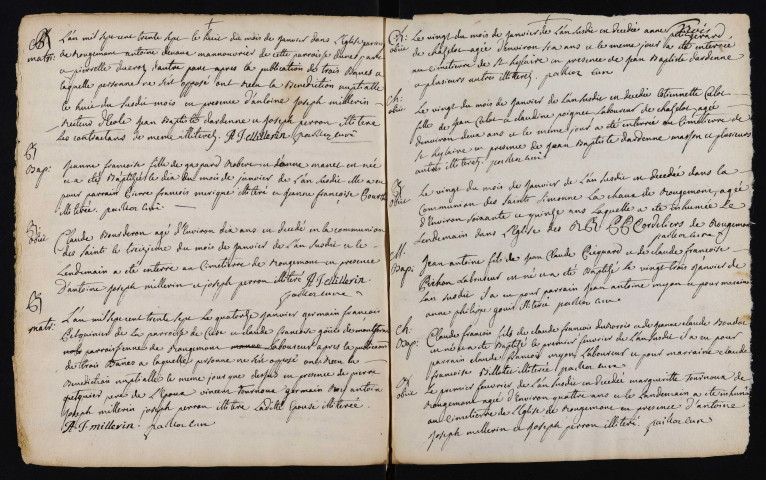 L'an mil sept cent trente sept le huit du mois de janvier dans l'Eglise
de Rougemont antoine manouvrier de cette paroisse d'une part
matri: a pierrette d'autre part apres la publication de trois Bans a
laquelle personne ne s'est opposé ont Recu la Benediction nuptialle
le huit du susdit mois en presence d'antoine Joseph millerin
Recteur d'Ecole jean Baptiste dardenne et joseph perron illiterés
les contractans de meme illiterez. A J millerin paillou curé
R
Bap: jeanne francoise fille de gaspard et manet est née
et a eté Baptisée le dix du mois de janvier de l'an susdit elle a eu
pour parrain francois illiteré et jeanne francoise
illiterée. paillou curé
R
obiit Claude Bonderon agé d'Environ dix ans est decedé en la communion
des saints le treizieme du mois de janvier de l'an susdit et le
Lendemain a eté enterré au Cimetierre de Rougemont en presence
d'antoine joseph millerin et joseph perron illiteré A J Millerin
paillou curé
R
matri: L'an mil sept cent trente sept le quatorze janvier germain francois
de la parroisse de et claude francoise
parroissienne de Rougemont Laboureur apres la publication
de trois Banes a laquelle personne ne s'est opposé ont Recu la
Benediction nuptialle le meme jour que dessus en presence de pierre
pere de l'Epoux vincent tournoux germain antoine
joseph millerin joseph perron illiteré Laditte Epouse illiterée.
A. J. millerin. paillou curé
Ch: Le vingt du mois de janvier de l'an susdit est decedée anne
obiit de chazelot agée d'environ six ans et le meme jour a eté enterrée
au Cimetierre de St hylaire en presence de jean Baptiste dardenne
et plusieurs autres illiterez. paillou curé
Ch: Le vingt du mois de janvier de l'an susdit est decedée
obiit fille de jean et claudine poignen Laboureur de chazelot agée
d'environ deux ans et le meme jour a eté enterrée au Cimetierre de
St hylaire en presence de jean Baptiste dardenne masson et plusieurs
autres illiterez. paillou curé
R
obiit Le vingt du mois de janvier de l'an susdit est decedée dans la
Communion des Saints simonne la de Rougemont, agée
d'Environ soixante et quinze ans laquelle a eté inhumée le
Lendemain dans l'Eglise des RR PP Cordeliers de Rougemont
paillou curé
M.
Bap: Jean antoine fils de jean Claude et de claude francoise
Pichon Laboureur est né et a eté Baptisé le vingt trois janvier de
l'an susdit il a eu pour parrain jean antoine et pour marraine
anne philippe illiterée paillou curé.
Ch:
Bap: Claude francois fils de claude francois et de jeanne claude
est né et a eté Baptisé le premier fevrier de l'an susdit il a eu pour
parrain claude francois Laboureur et pour marraine claude
francoise illiterée. paillou curé
R
obiit Le premier fevrier de l'an susdit est decedée marguerite tournoux de
Rougemont agée d'Environ quatre ans et le Landemain a eté inhumée
au Cimetierre de l'Eglise de Rougemont en presence d'antoine
joseph millerin et joseph perron illiteré. paillou curé